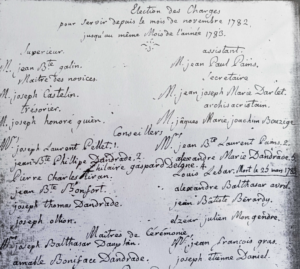 Election des Charges
pour servir depuis le mois de novembre 1782
jusqu'au même Mois de l'année 1783.
Superieur.
M. jean Bte galin.
Maitre des novices.
M. joseph Castelin.
trésorier.
M. joseph honoré quien.
assistant.
M. jean Paul Paris.
Secretaire
M. jean joseph Marie Darlet.
archisacristain.
M. jâques Marie joachim
Conseillers
Mrs joseph Laurent Pellet. 1.
jean Bte Philippe Dandrade. 2
hilaire gaspard
Pierre Charles
jean Bte Bonfort.
joseph thomas Dandrade.
joseph
M. jean Bte Laurent Paris. 2.
alexandre Marie Dandrade.
Louis Lebar. Mort le 23 may 1783
alexandre Balthasar
jean Batiste Bérardy.
elzéar julien Mongendre.
Maitres de Cérémonie.
M. joseph Balthasar
amable Boniface Dandrade.
M. jean françois gras.
joseph etienne Daniel.